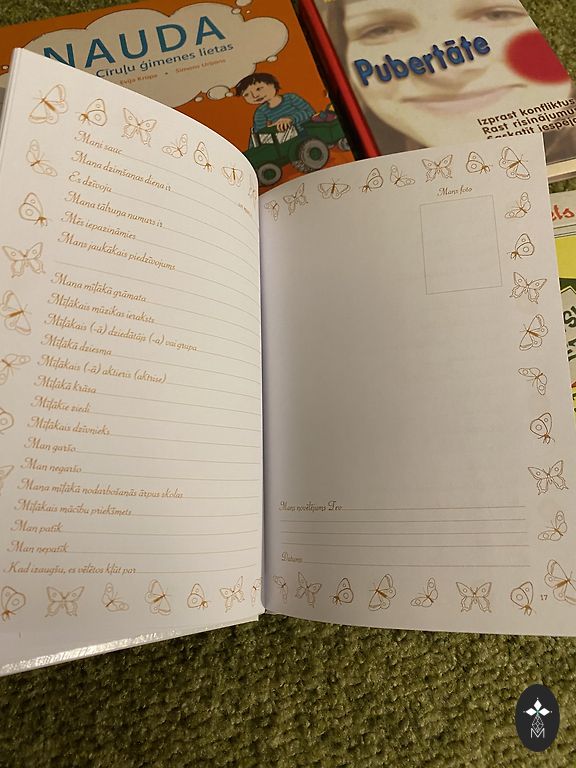 NAUDA
Cīruļu ģimenes lietas
Evija Kropa • Simons Urbans
Pubertāte
Izprast konfliktus
Rast risinājumu
Saskatīt iespēj
Mani sauc
Mana dzimšanas diena ir
Es dzīvoju
Mana tālruņa numurs ir
Mēs iepazināmies
Mans jaukākais piedzīvojums
Mana mīļākā grāmata
Mīļākais mūzikas ieraksts
Mīļākais (-ā) dziedātājs (-a) vai grupa
Mīļākā dziesma
Mīļākais (-ā) aktieris (aktrise)
Mīļākā krāsa
Mīļākie ziedi
Mīļākais dzīvnieks
Man garšo
Man negaršo
Mana mīļākā nodarbošanās ārpus skolas
Mīļākais mācību priekšmets
Man patīk
Man nepatīk
Kad izaugšu, es vēlētos kļūt par
Mans foto
Mans novēlējums Tev
Datums
17
M